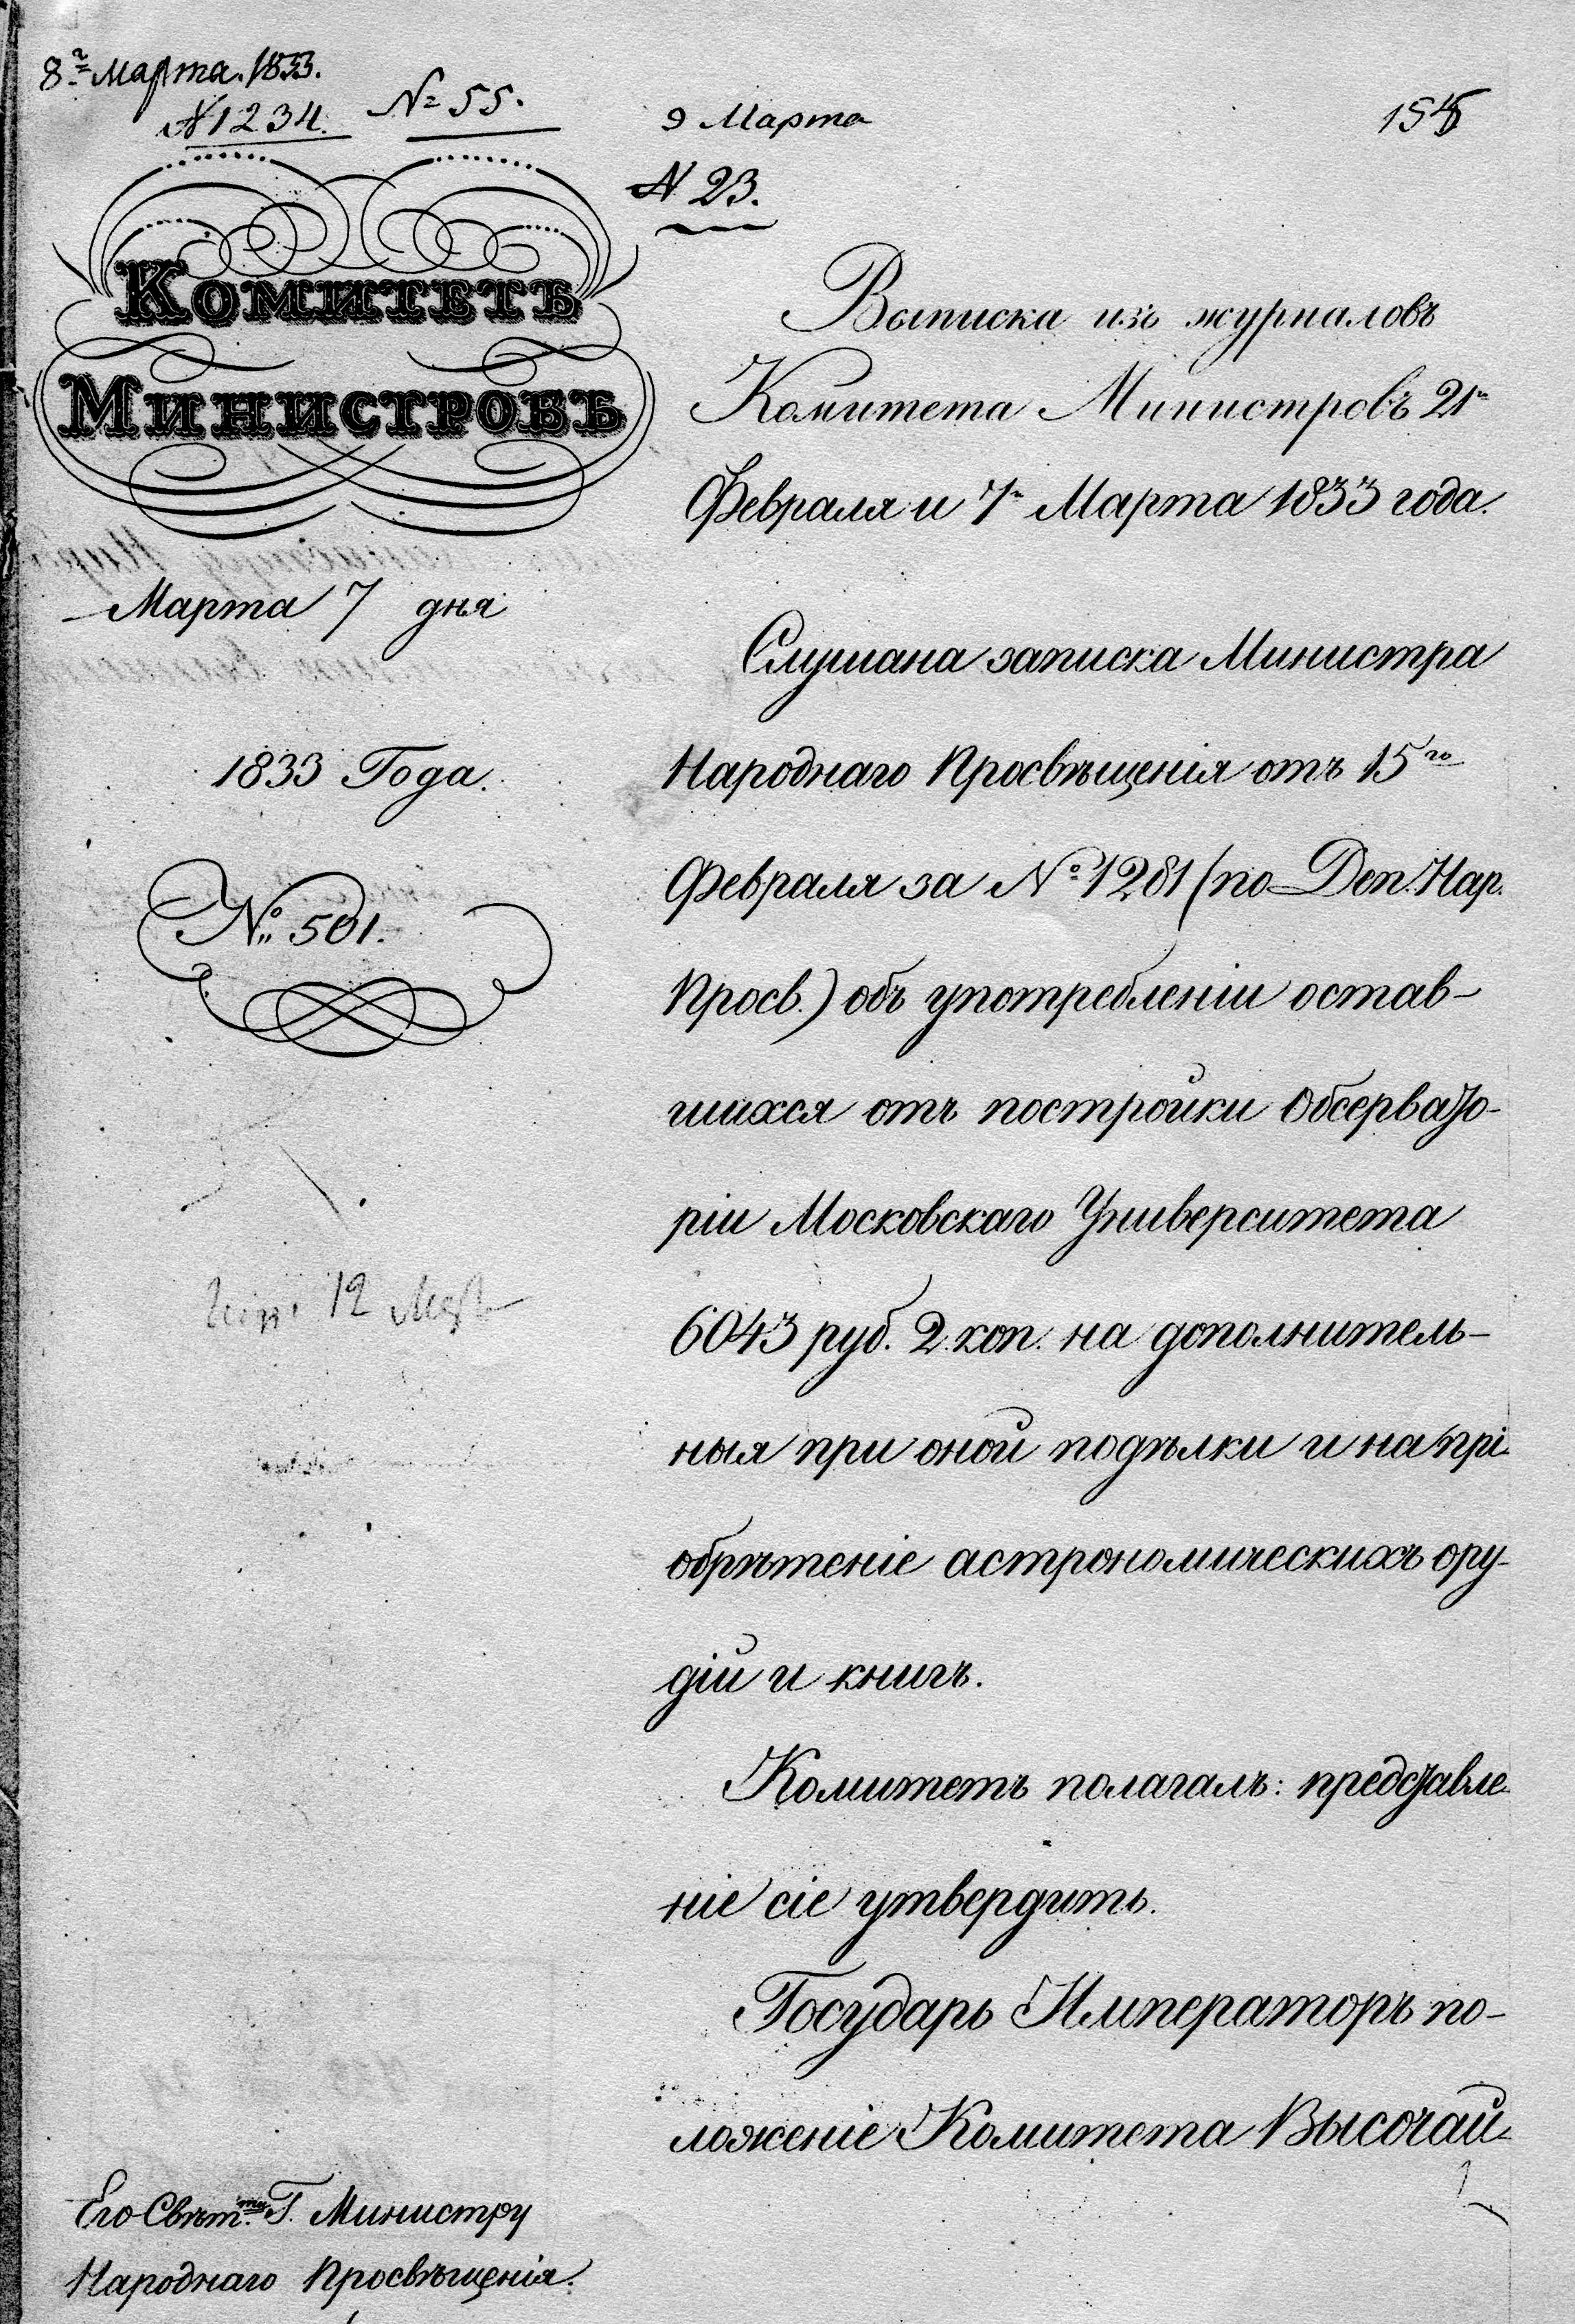 8го Марта. 1833.
N 1234.
№ 55.
9 Марта
N 23.
Комитетъ
Министровъ
Марта 7 дня
1833 Года.
№ 501.
Выписка изъ журналовъ
Комитета Министровъ 21го
Февраля и 7го Марта 1833 года.
Слушана записка Министра
Народнаго Просвѣщенія отъ 15го
Февраля за № 1281 (по Деп. Нар.
Просв.) объ употребленіи остав-
шихся отъ постройки Обсервато-
ріи Московскаго Университета
6043 руб. 2 коп. на дополнитель-
ныя при оной подѣлки и на прі-
обрѣтеніе астрономическихъ ору-
дій и книгъ.
Комитетъ полагалъ: представле-
ніе сіе утвердить.
Государь Императоръ по-
ложеніе Комитета Высочай-
Его Свѣт.ти Г. Министру
Народнаго Просвѣщенія.